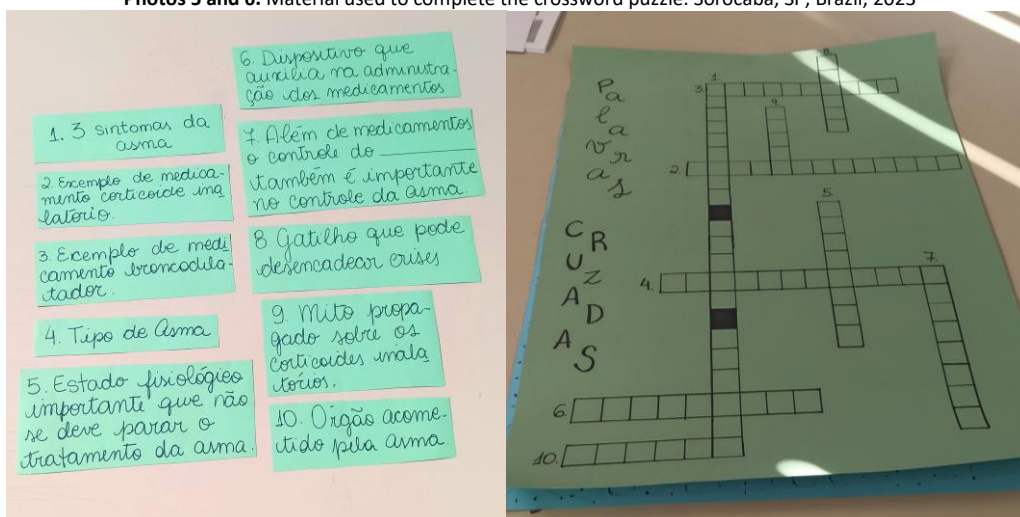 Photos 5 and 6: Material used to complete the crossword puzzle. Sorocaba, SP, Brazil, 2023
1. 3 sintomas da
asma
2. Exemplo de medica-
mento corticoide ina
latório.
3. Exemplo de medi
camento broncodila-
tador.
4. Tipo de Asma
5. Estado fisiológico
importante que não
se deve parar o
tratamento da asma.
6. Dispositivo que
auxilia na administra-
ção dos medicamentos
7. Além de medicamentos
o controle do ________
também é importante
no controle da asma.
8. Gatilho que pode
desencadear crises
9. Mito propa-
gado sobre os
corticoides inala
tórios.
10. Orgão acome-
tido pela asma.
Palavras
CRUZADAS
1.
8.
3.
9.
2.
5.
7.
4.
6.
10.